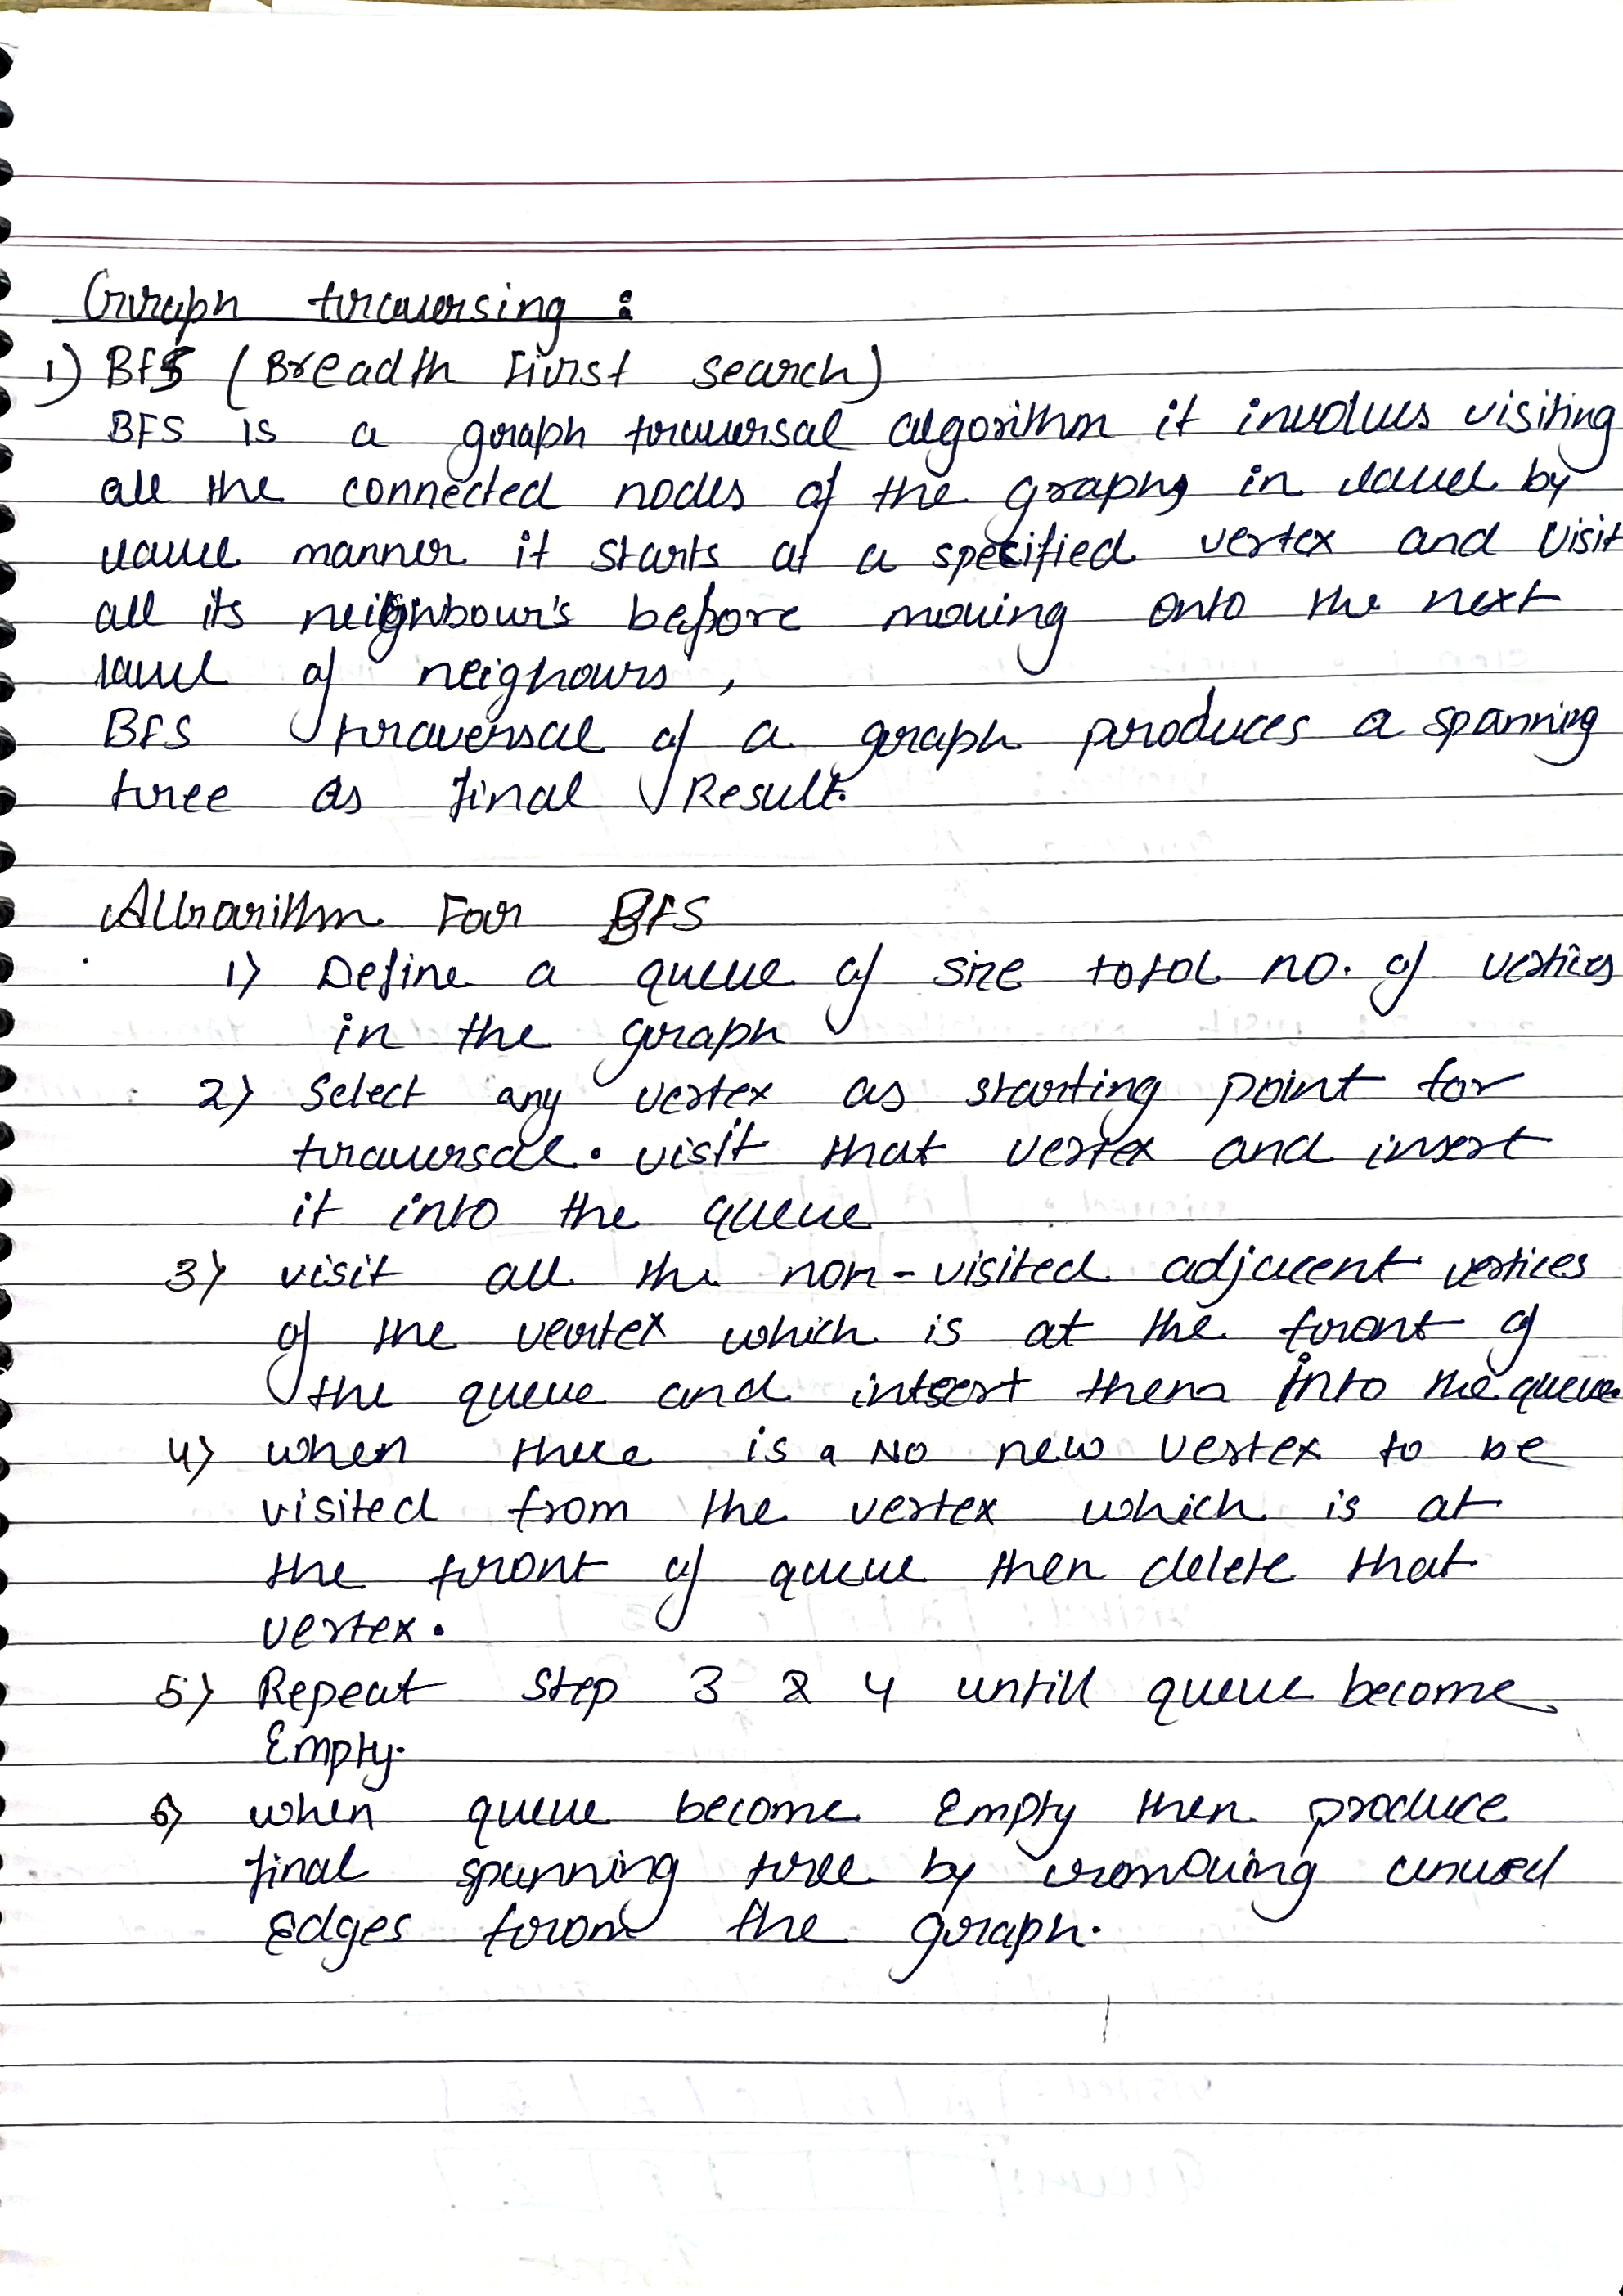 Graph traversing :
1) BFS (Breadth First search)
BFS is a graph traversal algorithm it involves visiting
all the connected nodes of the graphs in lavel by
lavel manner it starts at a specified vertex and visit
all its neighbour's before moving onto the next
lavel of neighours,
BFS traversal of a graph produces a spanning
tree as final Result.
For BFS
1) Define a queue of size total no. of vertices
in the graph
2) Select any vertex as starting point for
traversal. visit that vertex and insert
it into the queue
3) visit all the non-visited adjacent vertices
of the vertex which is at the front of
the queue and insert them into the queue.
4) when there is a No new vertex to be
visited from the vertex which is at
the front of queue then delete that
vertex.
5) Repeat step 3 & 4 untill queue become
Empty.
6) when queue become Empty then produce
final spanning tree by removing unused
edges from the graph.